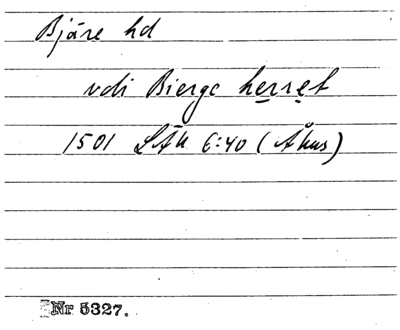 Bjäre hd
vdi Bierge herret
1501 LÄU 6:40 (Åhus)
Nr 5327.